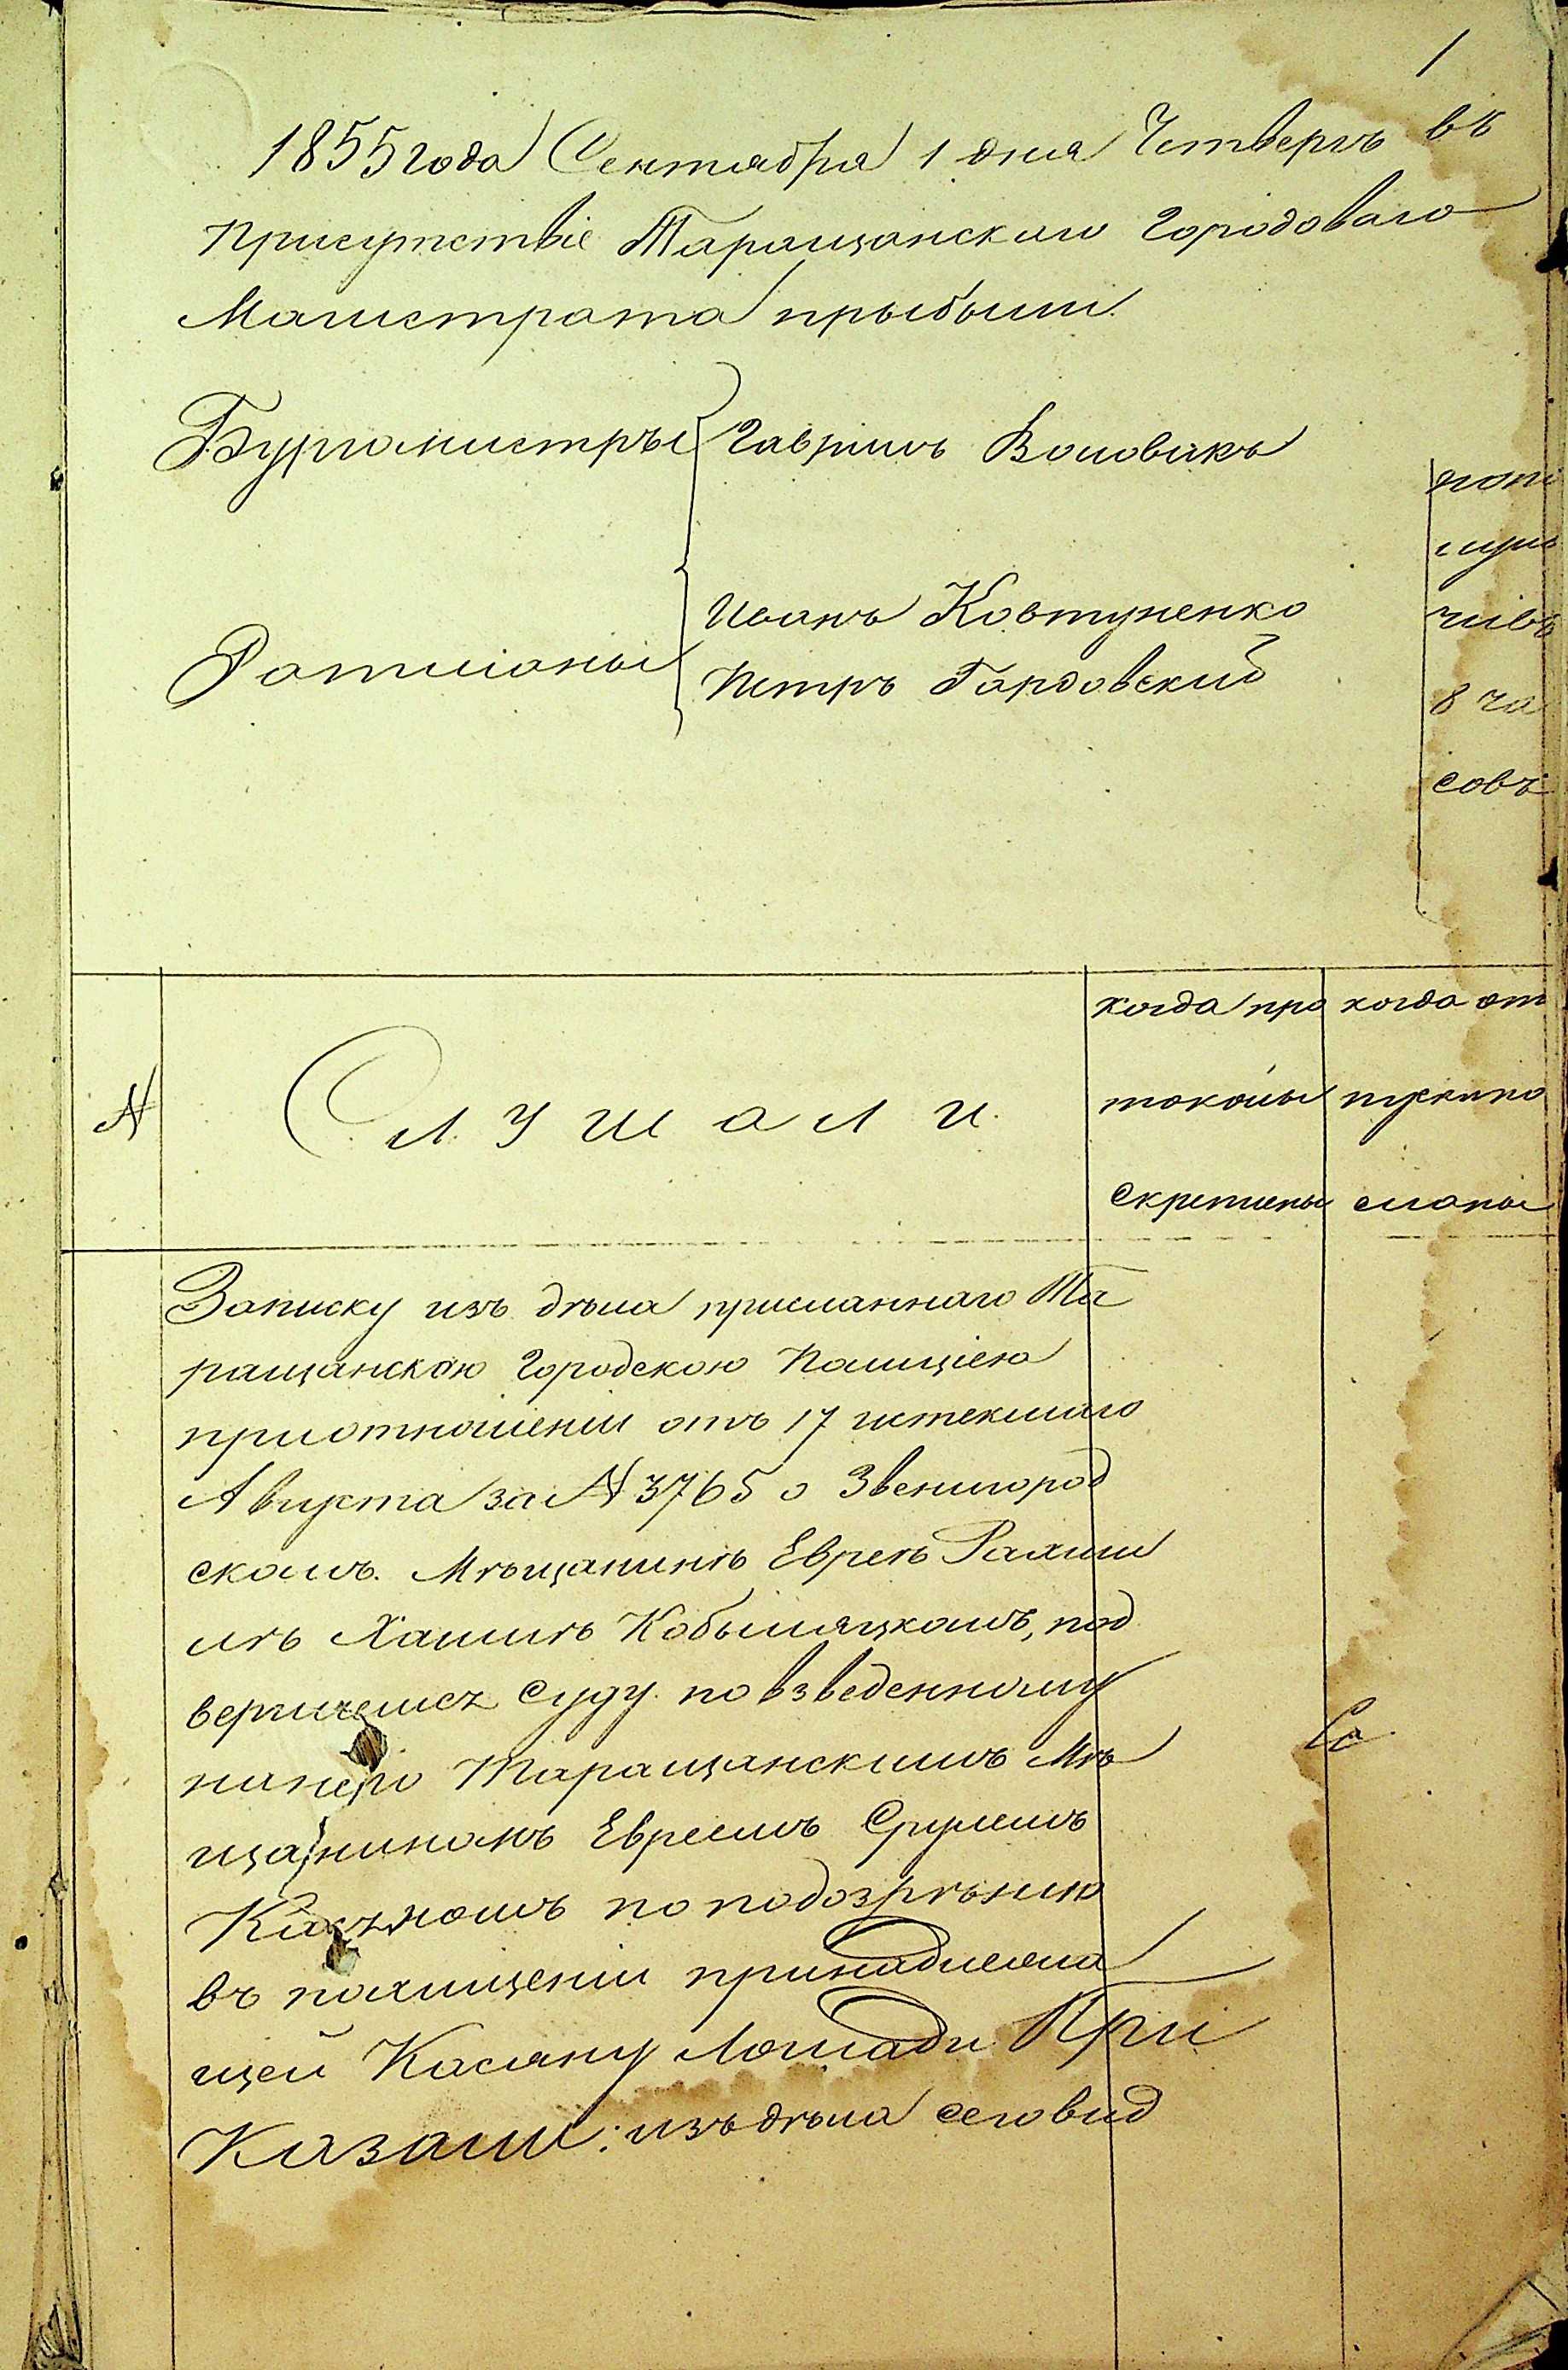 1
1855 года Сентября 1 дня Четвергъ въ
присутствіе Таращанскаго Городоваго
Магистрата прыбыли.
Бургомистры Гаврилъ Воловикъ
Иванъ Ковтуненко
Ратманы
Петръ Гардовский
попо
лудни
8 ча
совъ
N
Слушали.
когда про
токолы
скреплены
когда от
пуски по
сланы
Записку изъ дѣла присланнаго Та
ращанскою Городскою Полиціею
приотношеніи отъ 17 истекшаго
Августа за N 3765 о Звенигород
скомъ Мѣщанинѣ Евреѣ Рахми
лѣ Хаимѣ Кобыляцкомъ, под
вергшемся суду по взведенному
нанего Таращанскимъ Мѣ
щаниномъ Евреемъ Срулемъ
по подозрѣнию
въ похищеніи принадлежа
щей Касяну Лошади При
Казали: изъ дѣла сего вид